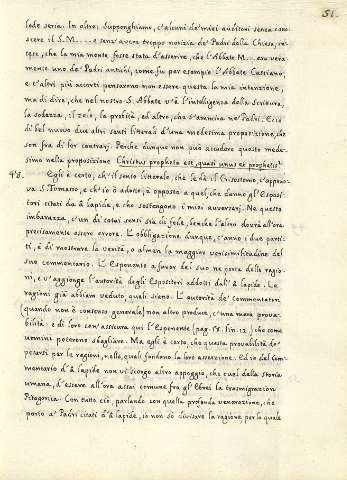 51.
fede seria. In oltre. Supponghiamo, c'alcuni de' miei auditori senza cono-
scere il S. M.... e senz' avere troppo notizia de' Padri della Chiesa, in-
tese, che la mia mente fosse stata d'asserire, che l'Abbate M... era vera
mente uno de' Padri antichi, come fu per esempio l'Abbate Cassiano;
e c'altri più accorti pensavano non essere questa la mia intenzione,
ma di dire, che nel nostro S. Abbate v'è l'intelligenza della Scrittura,
la sodezza, il zelo, la probità, ed altro, che s'ammira ne' Padri. Ecco
di bel nuovo due altri senti litterali d'una medesima proposizione, che
son fra di lor contrarj. Perche dunque non può accadere questo mede-
simo nella proposizione Christus propheta est, quasi unus ex prophetis?
48. Egli è certo, ch'il senso litterale, che le dà il Crisostomo, e l'appro-
va S. Tomaso, e ch'io ò adotto, è opposto a quel, che danno gl'Esposi-
tori citati da à lapide, e che sostengono i miei avversarj. Ne questo
imbarazza, c'un di cotai sensi sia di fede, senche l'altro dovrà all'ora
precisamente essere errore. L'obbligazione dunque, c'anno i due parti-
ti, è di mostrare la verità, o almen la maggior verisimilitudine del
suo commentario. L'Esponente a favor dei suo ne porta delle ragio-
ni, e v'aggionge l'autorità degli Espositori addotti dall' à lapide. Le
ragioni già abbiam veduto quali sieno. L'autorità de' Commentatori
(quando non è consenso generale) non altro produce, c'una mera proba-
bilità: e di loro con'assicura qui l'Esponente (pag. 18. lin. 12.) che come
uomini poterono sbagliare. Ma egli è certo, che questa probabilità de'
pesarsi per le ragioni, nelle quali fondano la loro asserzione. Ed io del com-
mentario d' à lapide non vi scorgo altro appoggio, che quel della storia
umana, d'essere all'ora assai comune fra gl'Ebrei la trasmigrazion
Pitagorica. Con tutto ciò, parlando con quella profonda venerazione, che
porto a' Padri citati d' à lapide, io non sò divisare la ragione, per la quale